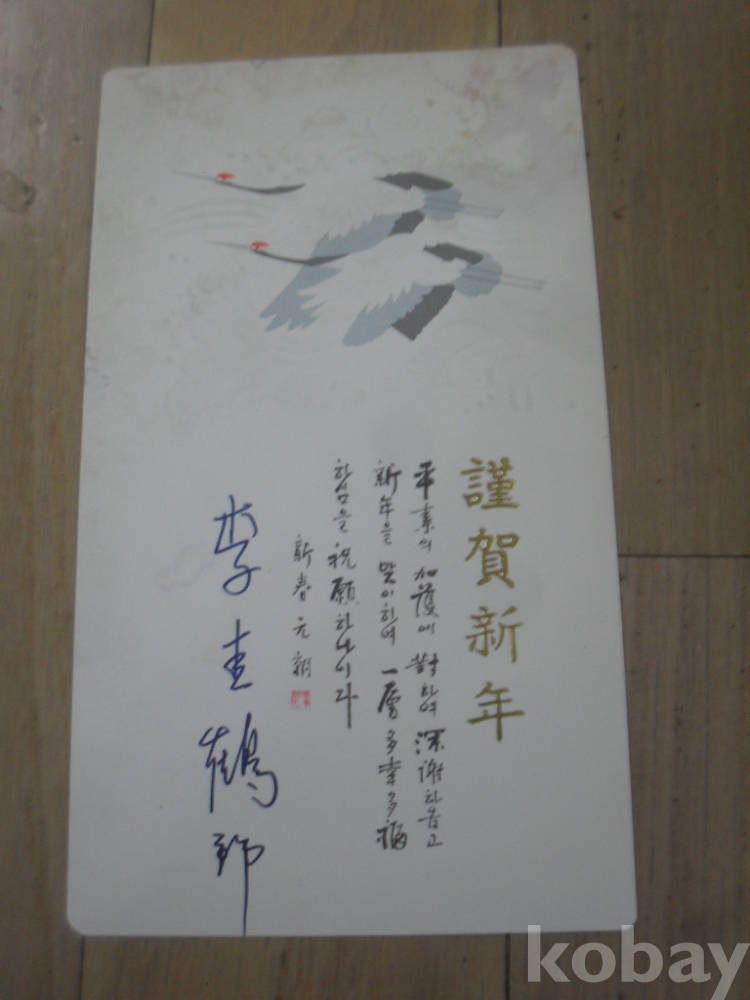 謹賀新年
平素의 加護에 對하여 深謝하옵고
新年을 맞이하여 一層 多幸多福
하심을 祝願하나이다
新春 元朝
李圭鶴
kobay